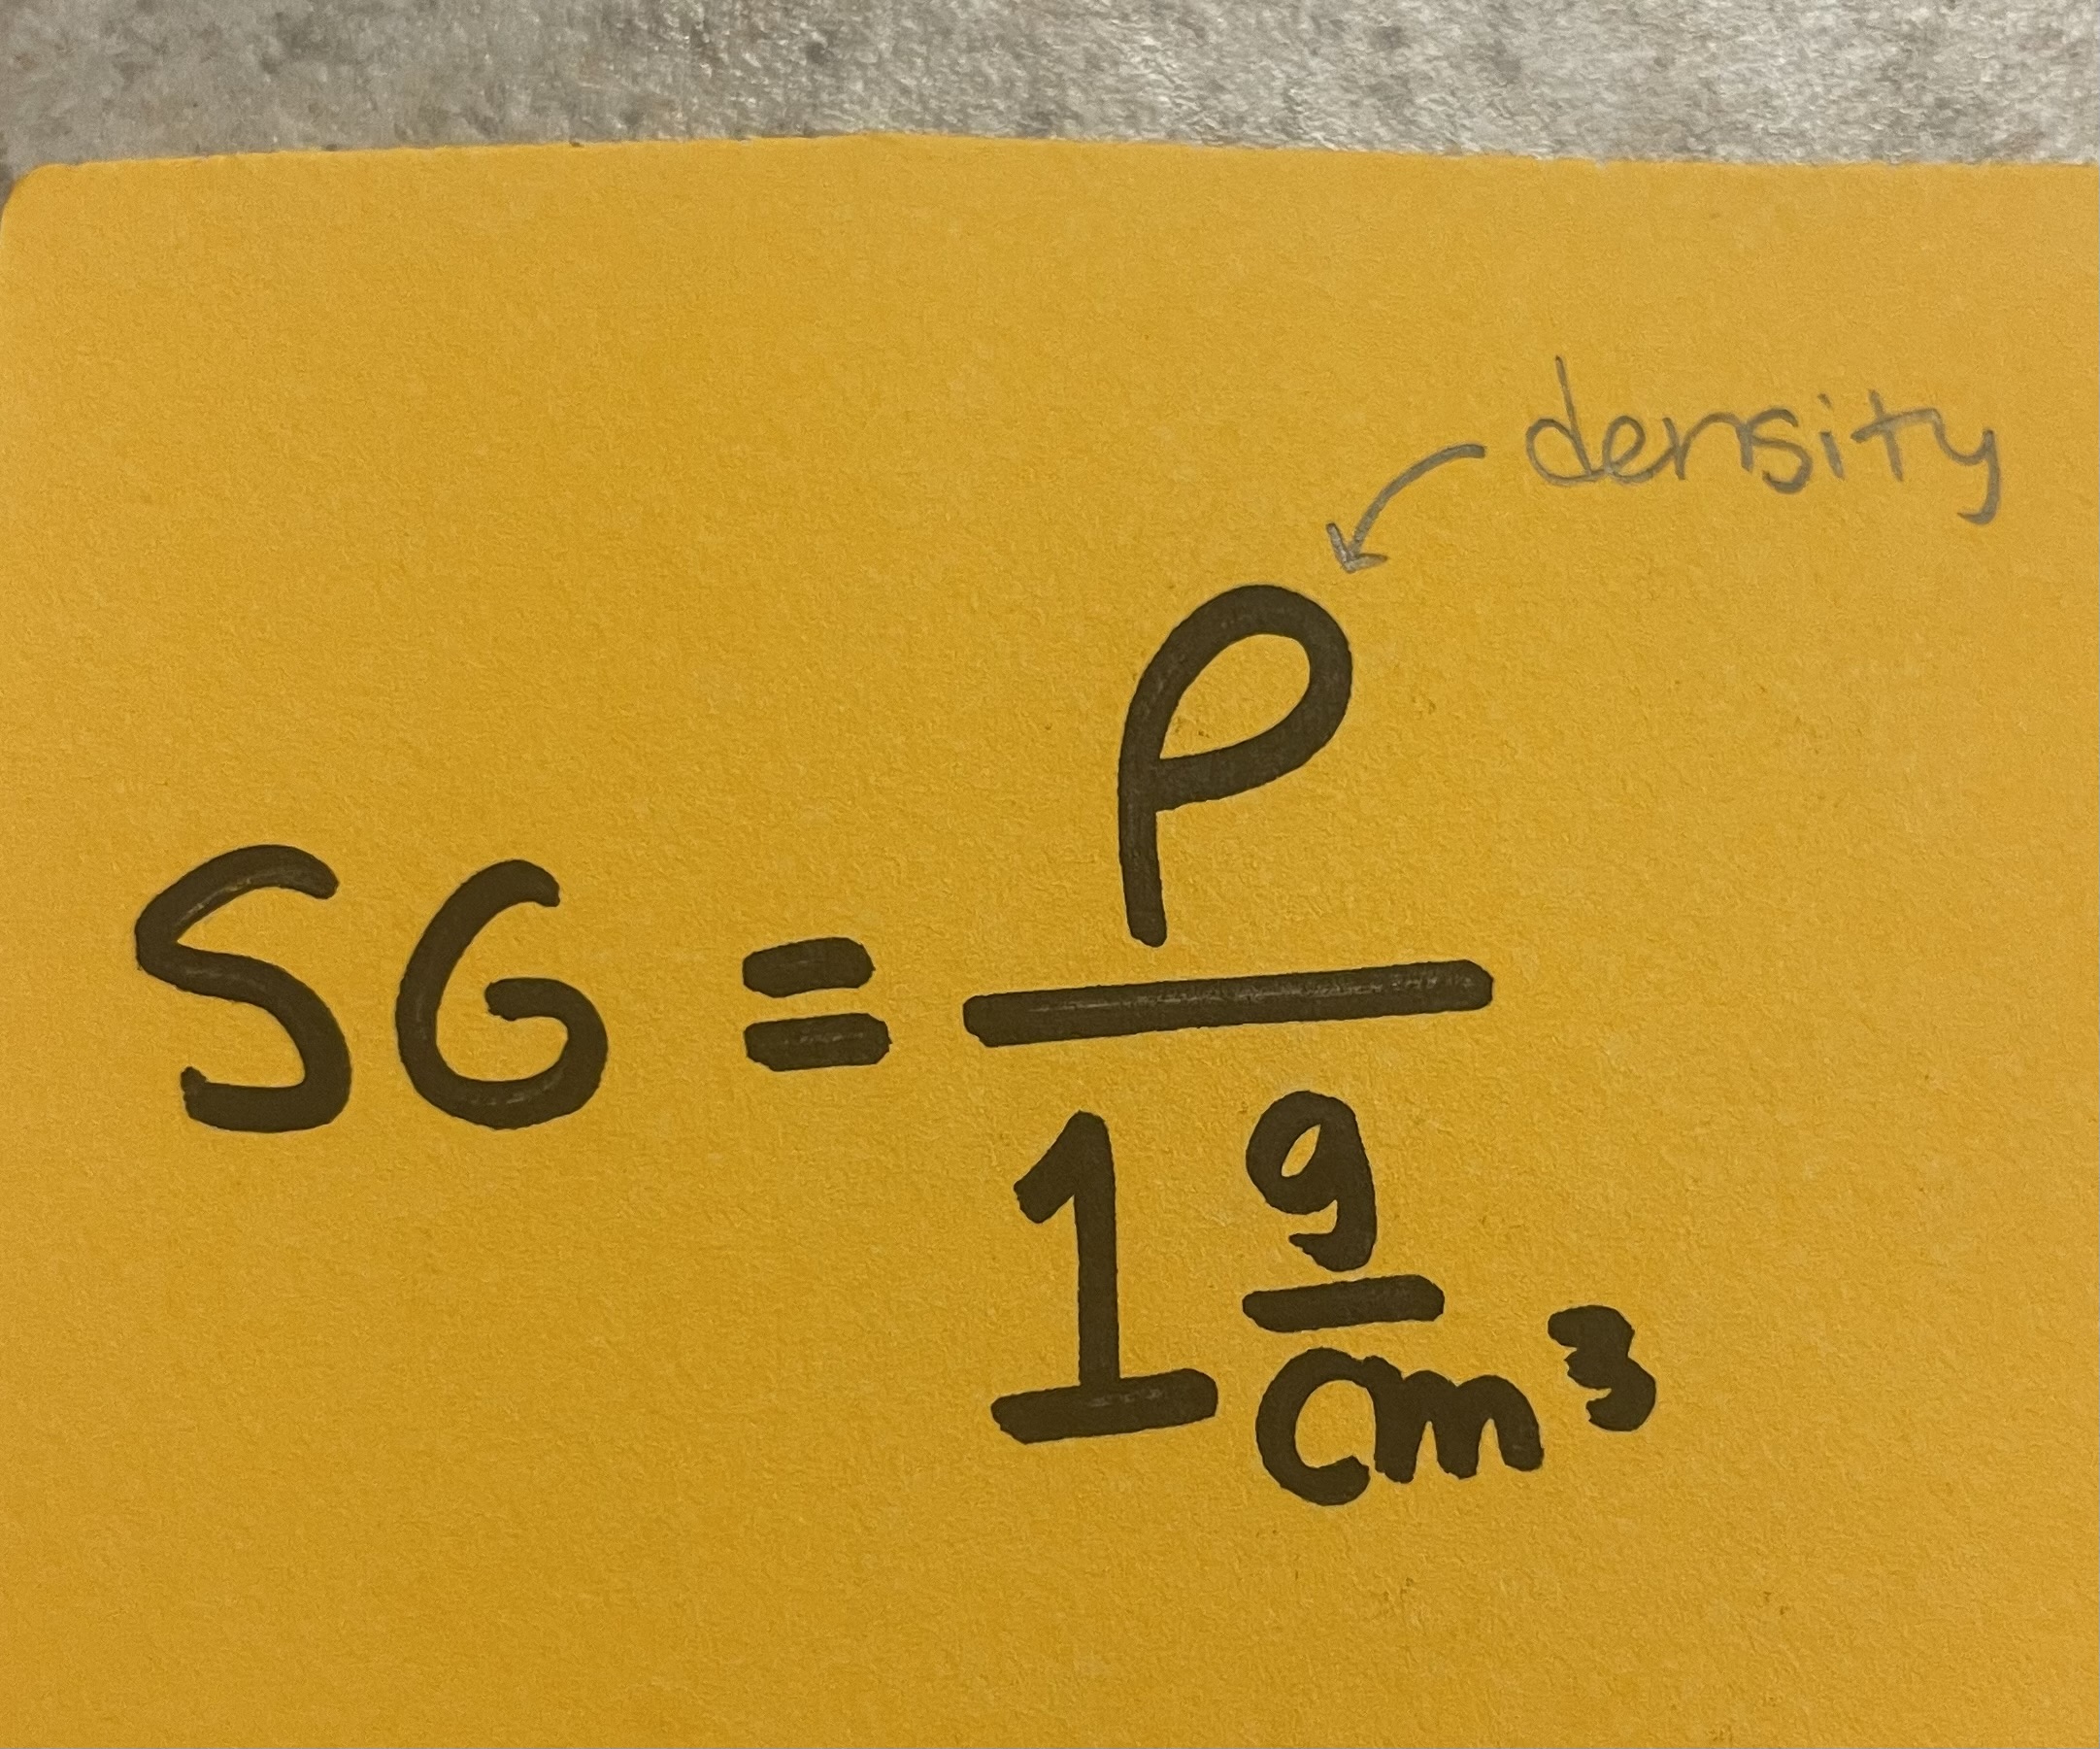 density
ρ
SG =
1 g
cm³